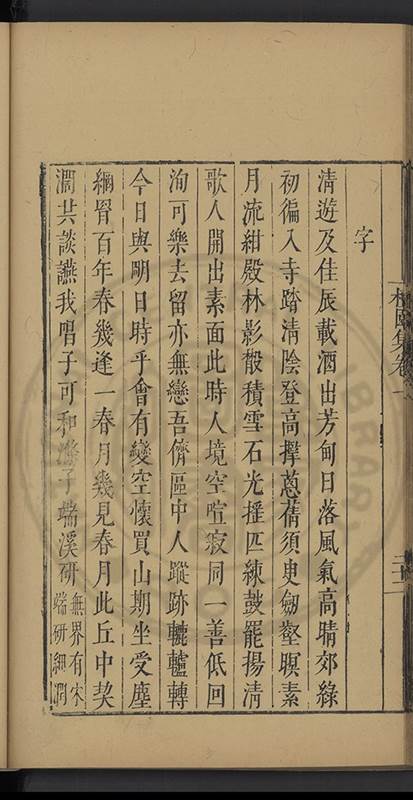 集卷一
字
清遊及佳辰載酒出芳甸日落風氣高晴郊綠
初徧入寺踏清陰登高擇蔥蒨須臾劒壑暝素
月流紺殿林影殽積雪石光搖匹練鼓罷揚清
歌人開出素面此時人境空喧寂同一善低回
洵可樂去留亦無戀吾儕區中人蹤跡轆轤轉
今日與明日時乎會有變空懷買山期坐受塵
網罥百年春幾逢一春月幾見春月此丘中契
濶共談讌我唱子可和潑子端溪研無界有宋
端研細潤